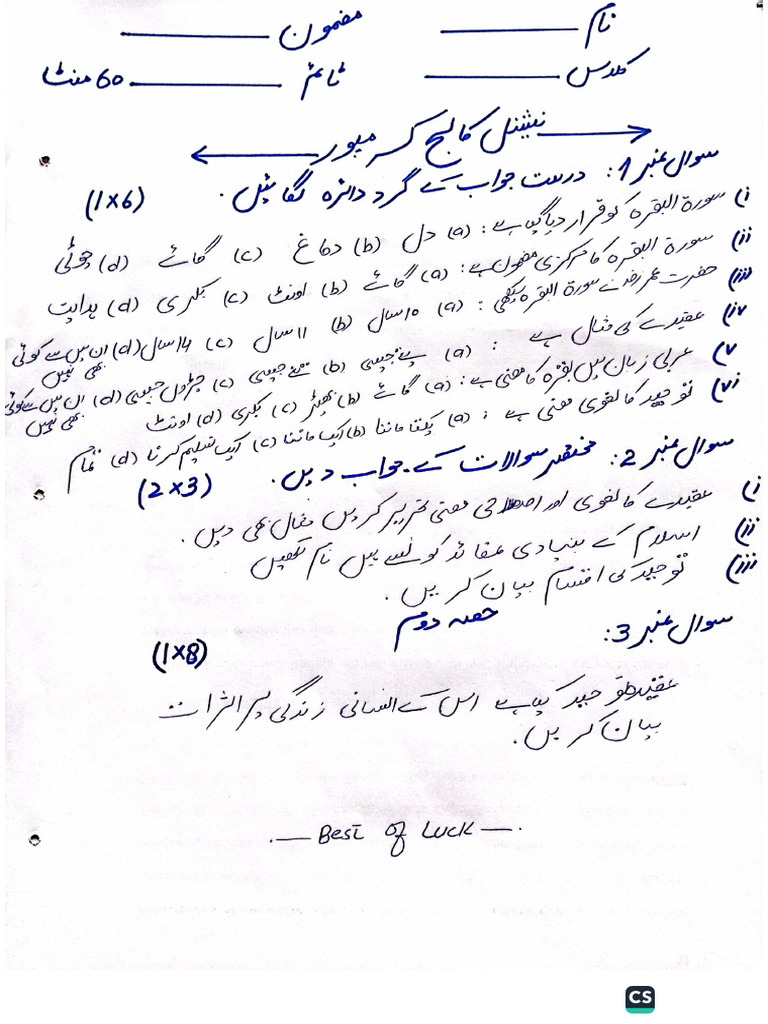 نام ________ مضمون ________
کلاس ________ ٹائم ________ 60 منٹ
نیشنل کالج کسر میور
سوال نمبر 1: درست جواب کے گرد دائرہ لگائیں۔ (1×6)
i) سورۃ البقرہ کو قرار دیا گیا ہے: (a) دل (b) دماغ (c) گائے (d) چوٹی
ii) سورۃ البقرہ کا مرکزی مضمون ہے: (a) گائے (b) اونٹ (c) بکری (d) ہدایت
iii) حضرت عمر رضہ نے سورۃ البقرہ سیکھی: (a) 10 سال (b) 11 سال (c) 14 سال (d) ان میں سے کوئی بھی نہیں
iv) عقیدے کی مثال ہے : (a) پتے جیسی (b) تنے جیسی (c) جڑوں جیسی (d) ان میں سے کوئی بھی نہیں
v) عربی زبان میں بقرہ کا معنی ہے: (a) گائے (b) بھیڑ (c) بکری (d) اونٹ
vi) توحید کا لغوی معنی ہے : (a) یکتا ماننا (b) ایک ماننا (c) ایک تسلیم کرنا (d) تمام
سوال نمبر 2: مختصر سوالات کے جواب دیں۔ (2×3)
i) عقیدے کا لغوی اور اصطلاحی معنی تحریر کریں مثال بھی دیں۔
ii) اسلام کے بنیادی عقائد کونسے ہیں نام لکھیں
iii) توحید کی اقسام بیان کریں۔
حصہ دوم
سوال نمبر 3: (1×8)
عقیدہ توحید کیا ہے اس کے انسانی زندگی پر اثرات
بیان کریں۔
.— Best of Luck —.
CS